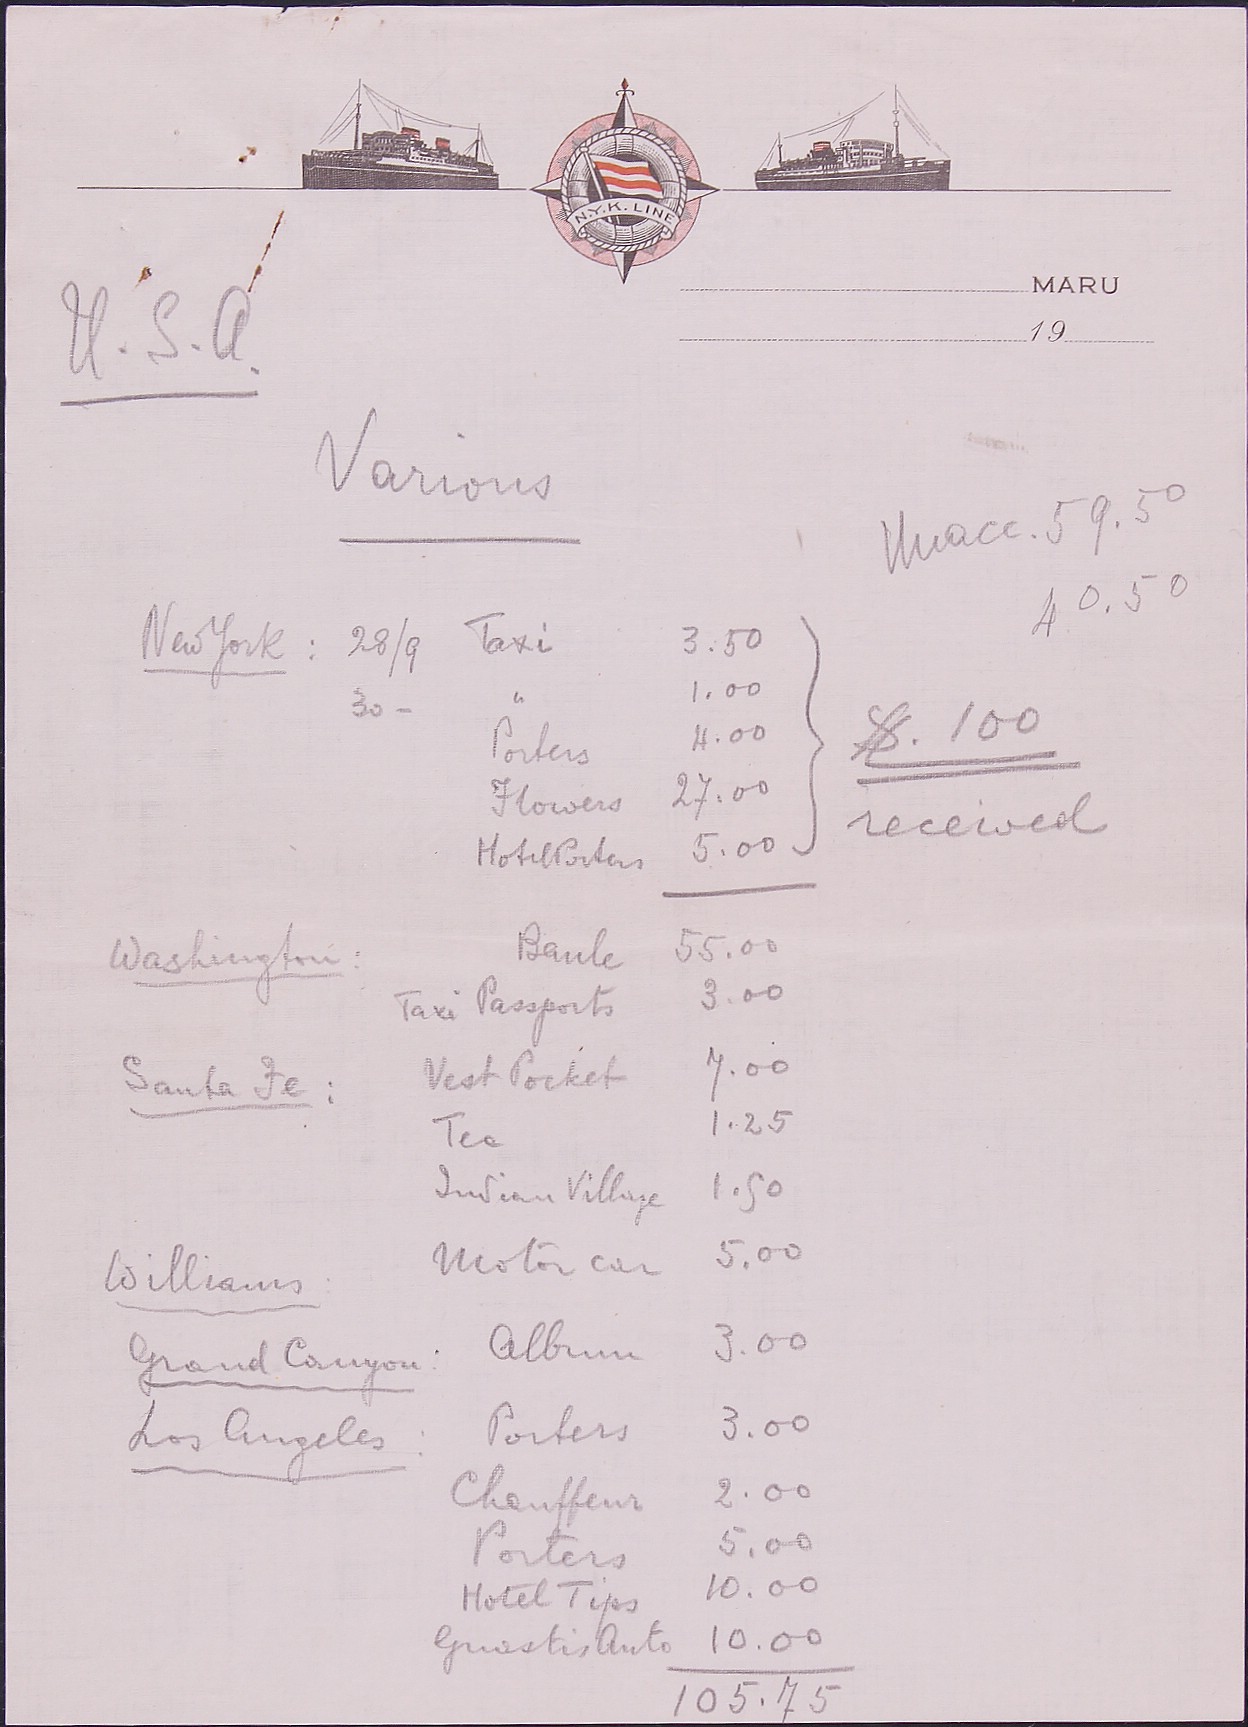 N.Y.K. LINE
MARU
19
U.S.A.
Various
Unacc. 59.50
40.50
New York : 28/9 Taxi 3.50
30 - " 1.00
Porters 4.00
$. 100
Flowers 27.00
received
Hotel Porters 5.00
Washington : Bank 55.00
Taxi Passports 3.00
Santa Fe : Vest Pocket 7.00
Tea 1.25
Indian Village 1.50
Williams : Motor car 5.00
Grand Canyon : Album 3.00
Los Angeles : Porters 3.00
Chauffeur 2.00
Porters 5.00
Hotel Tips 10.00
Auto 10.00
105.75